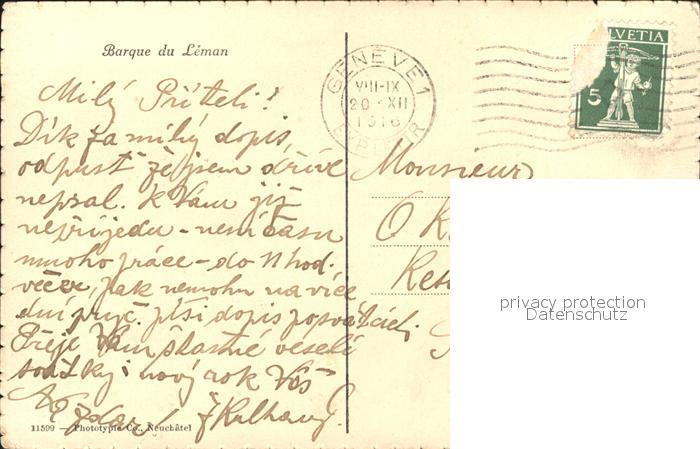 Barque du Léman
GENÈVE 1
VIII-IX
20 XII
1916
HELVETIA
5
Milý Příteli!
Dík za milý dopis,
odpusť že jsem dříve
nepsal. K Vám již
nepřijedu - není času
mnoho práce - do 11 hod.
večer, pak nemohu na více
dní pryč. píši dopis po svátcích.
Přeje Vám šťastné veselé
svátky i nový rok Váš
Kulhavý.
Monsieur
O K
privacy protection
Datenschutz
11599 — Phototypie Co., Neuchâtel